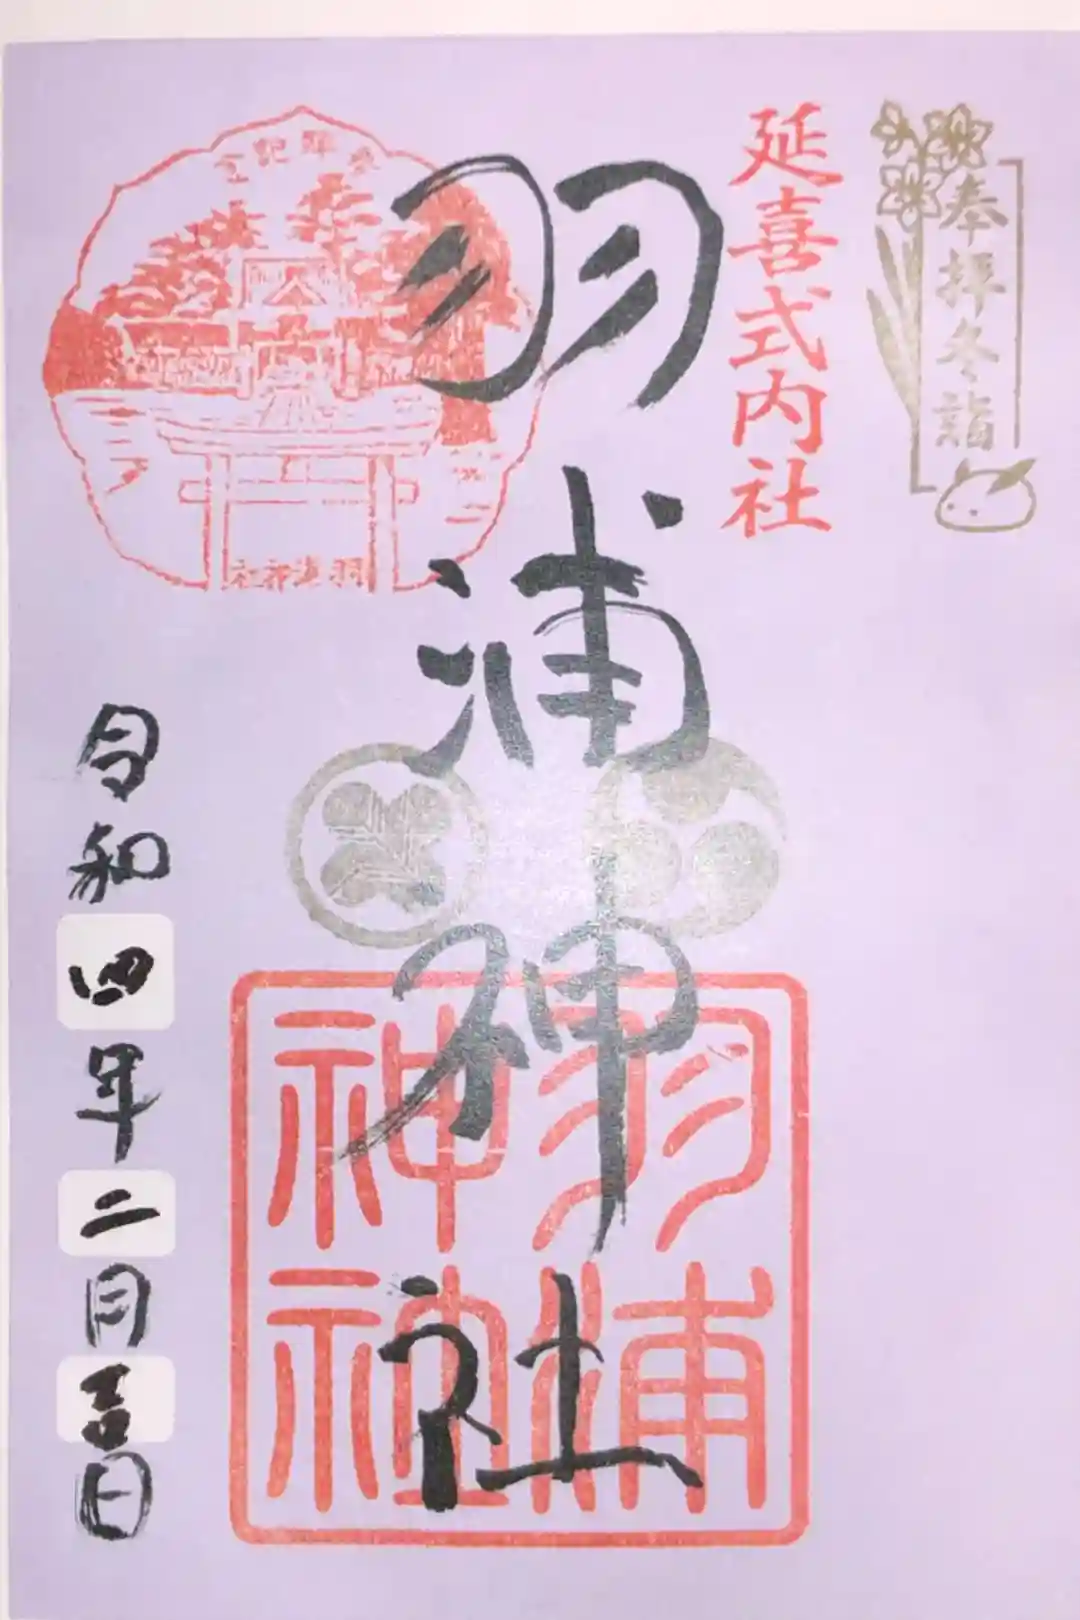 奉拝冬詣
延喜式内社
羽浦神社
羽浦神社
羽浦神社
令和四年二月吉日